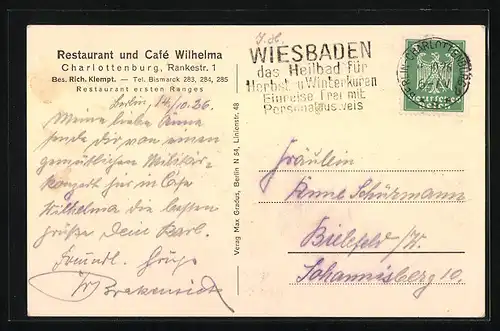 Restaurant und Café Wilhelma
Charlottenburg, Rankestr. 1
Bes. Rich. Klempt. — Tel. Bismarck 283, 284, 285
Restaurant ersten Ranges
Berlin, 14./10.26.
Meine liebe Änne
sende dir von einem
gemütlichen Militär-
konzert hier in Cafe
Wilhelma die besten
Grüße Dein Karl.
Freundl. Grüße
Verlag Max Gradus, Berlin N 54, Linienstr. 48
WIESBADEN
das Heilbad für
Herbst u Winterkuren
Einreise frei mit
Personalausweis
BERLIN-CHARLOTTENBURG
Deutsches
Reich
Fräulein
Änne Schürmann
Bielefeld /W.
Johannisberg 10.